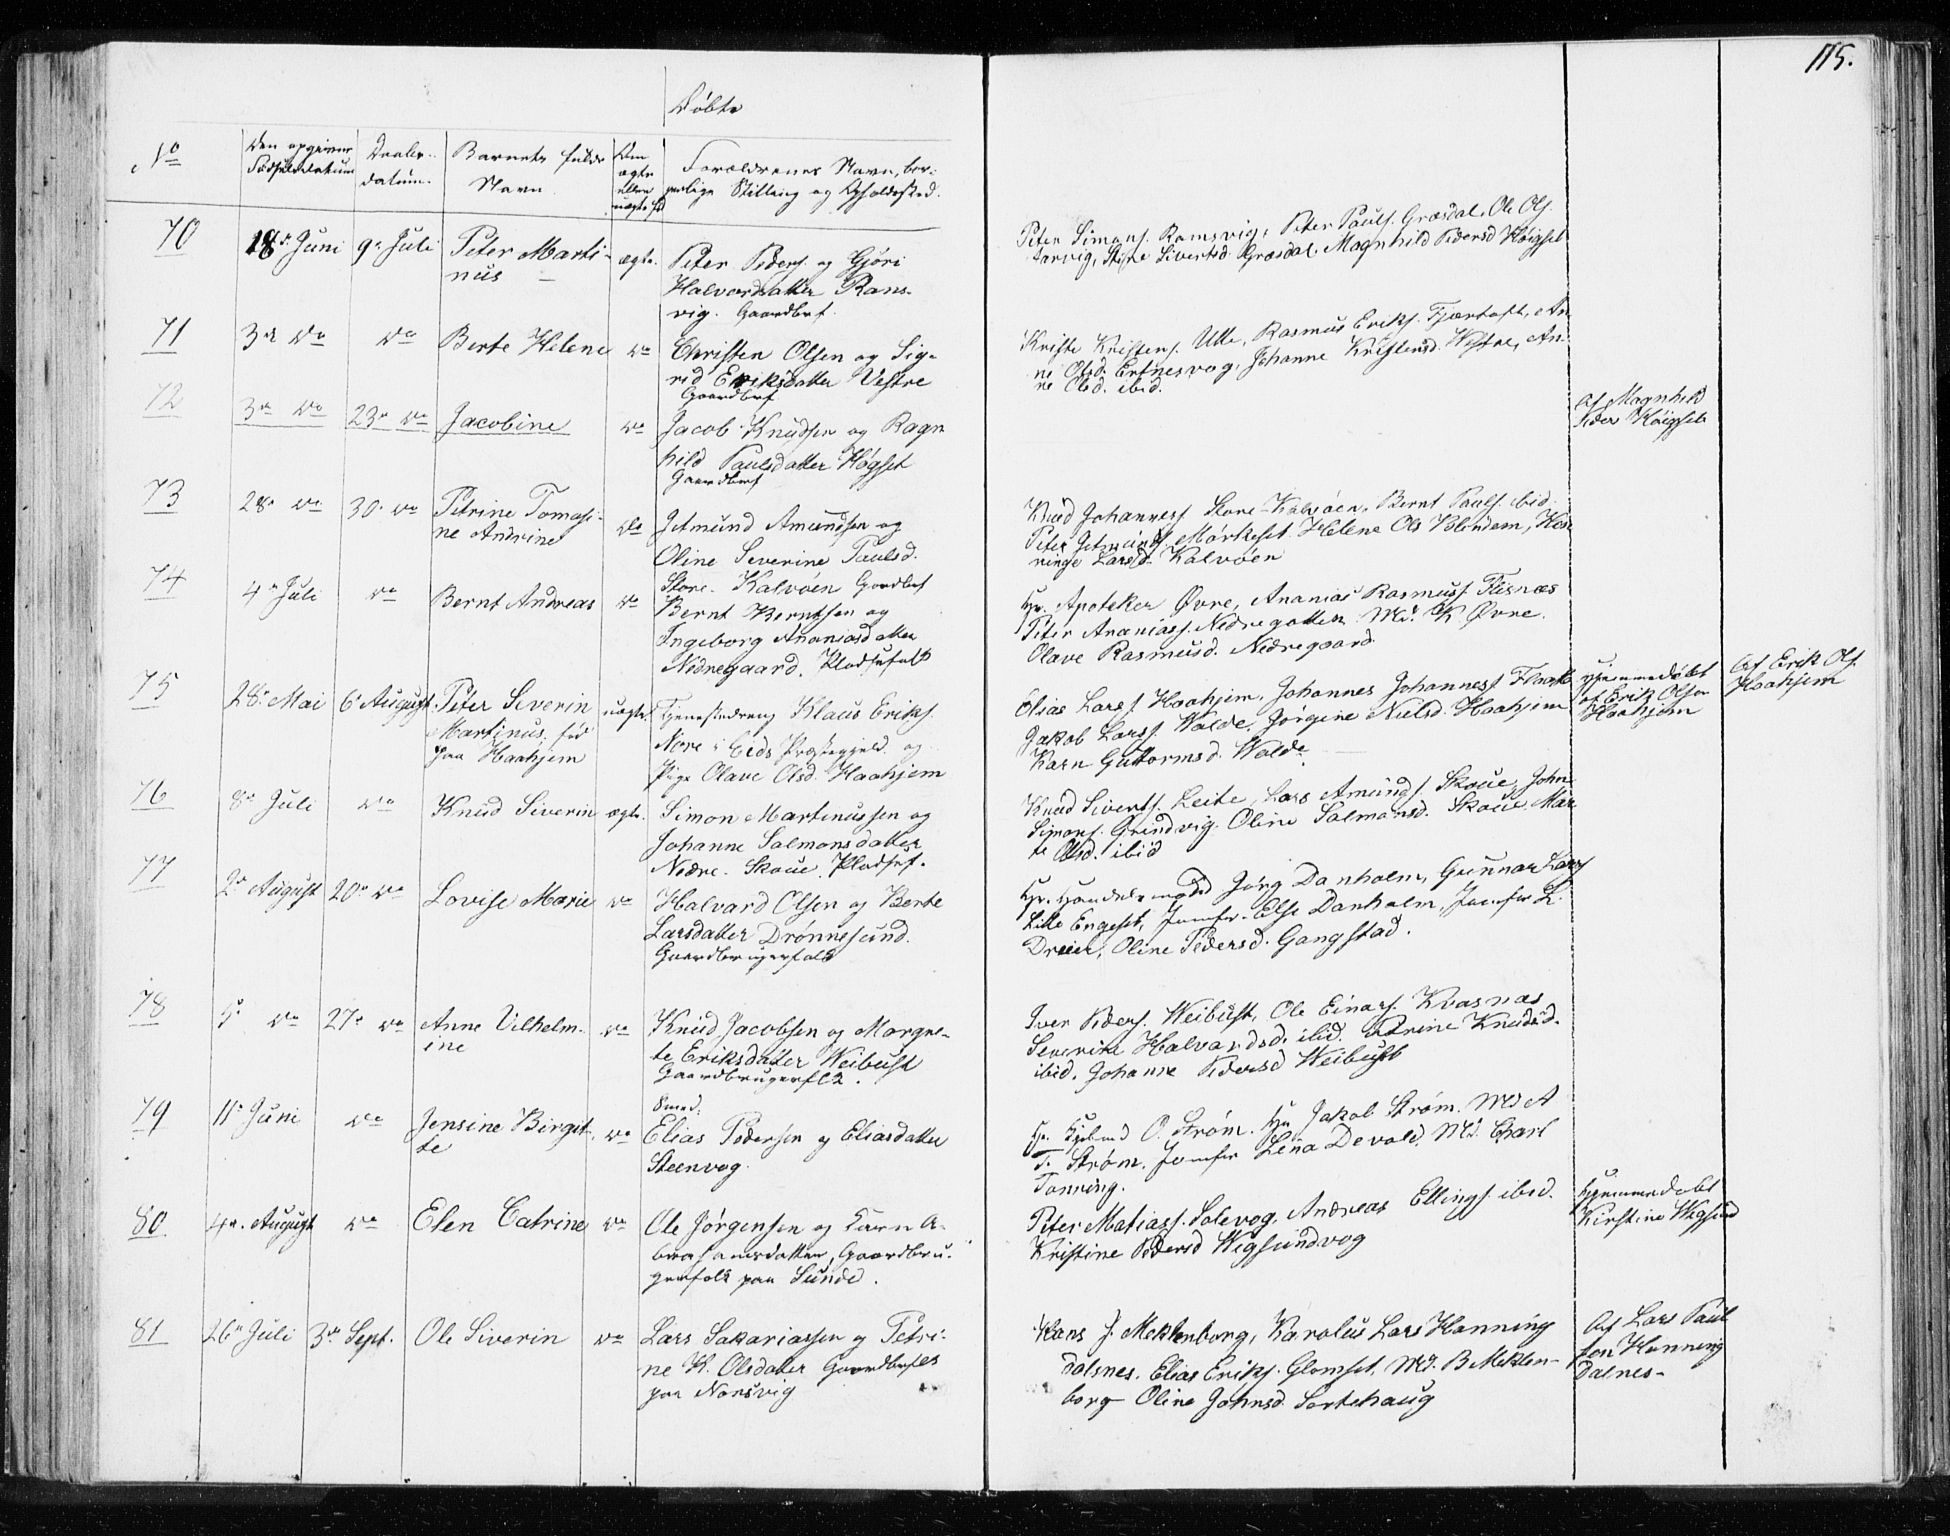 115.
Døbte
No
Den opgivne Fødselsdatum
Daabs-datum.
Barnets fulde Navn
Om ægte eller uægte fød
Forældrenes Navn, bor-
gerlige Stilling og Opholdssted.
70 18de Juni 9de Juli Peter Marti-
nus ægte. Peter Peders. og Gjøri
Halvardsdatter Rams-
vig. Gaardbrf.
Peter Simons. Ramsvig, Peter Pauls. Græsdal, Ole Ols.
Sivertsd. Græsdal, Magnhild Pedersd Høigset
71 3de do do Berte Helene do Christen Olsen og Sig-
rid Eriksdatter Vestre
Gaardbrf
Kristen Kristens. Ulle, Rasmus Eriks. Fjærtoft, An-
ne Olsd. Ertnesvog, Johanne Kristensd. Westre, An-
ne Olsd. ibid.
72 3de do 23de do Jacobine do Jacob Knudsen og Ragn
hild Paulsdatter Høgset
Gaardbrf
Af Magnhild
Peders Høigset
73 28de do 30. do Petrine Tomasi-
ne Andrine do Jetmund Amundsen og
Oline Severine Paulsd.
Store-Kalvøen Gaardbrf
Knud Johanness Store-Kalvøen, Bernt Pauls. ibid.
Peter Jetmunds. Mørkeset. Helene Ols Blindem,
Larsd. Kalvøen
74 4de Juli do Bernt Andreas do Bernt Berntsen og
Ingeborg Ananiasdatter
Nedregaard. Pladsefolk
Hr. Apoteker Øvre, Ananias Rasmuss. Flisnæs
Peter Ananiass. Nedregotten Md. K Øvre.
Olave Rasmusd. Nedregaard
75 28de Mai 6te August Peter Severin
Martinus. fød
paa Haahjem uægte. Tjenestedreng Klaus Eriks.
Nore i Eids Præstegjeld og
Pige Olave Olsd. Haahjem
Elias Larss Haahjem, Johannes Johanness Flaate
Jakob Larss Walde, Jørgine Nielsd. Haahjem
Karn Guttormsd. Walde.
Hjemmedøbt
af Erik Olsen
Haahjem
Af Erik Ols.
Haahjem
76 8de Juli do Knud Siverin ægte. Simon Martinussen og
Johanne Salmonsdatter
Nedre-Skoue, Pladsef.
Knud Siverts. Leite, Lars Amunds. Skoue, John
Simons. Grindvig. Oline Salmonsd. Skoue, Mar
te Olsd. ibid
77 2de August 20de do Lovise Marie do Halvard Olsen og Berte
Larsdatter Drønnesund.
Gaardbrugerfolk
Hr. Handelsmand Jørg Danholm, Gunnar Larss
Lille Engeset, Jomfr. Else Danholm, Jomfr L.
Dreier, Oline Pedersd. Gangstad.
78 5. do 27de do Anne Vilhelm-
ine do Knud Jacobsen og Margre-
te Eriksdatter Weibust
Gaardbrugerflk.
Iver Peders. Weibust, Ole Einars. Kvasnæs
Severine Halvardsd. ibid. Petrine Knudsd.
ibid. Johanne Pedersd Weibust
79 11te Juni do Jensine Birgit-
te do Smed:
Elias Pedersen og Eliasdatter
Steenvog.
Hr. Kjøbmd O. Strøm. Hr Jakob Strøm. Md A
T. Strøm. Jomfr Lena Devold. Md. Charl
Tonning.
80 4de. August do Elen Catrine do Ole Jørgensen og Karn A-
brahamsdatter, Gaardbru-
gerfolk paa Sunde.
Peter Matiass. Solevog, Andreas Ellings. ibid.
Kristine Pedersd Wegsundvog
Hjemmedøbt
Kirstine Wegsund
81 26de Juli 3de Sept. Ole Siverin do Lars Sakariassen og Petri-
ne K. Olsdatter Gaardbrflk
paa Norsvig
Hans J. Meklenborg, Karolus Lars Hanning
dalsnes. Elias Eriks. Glomset, Md. B Meklen-
borg Oline Johnsd. Sortehaug
Af Lars Paul
sen Hanning
dalnes-